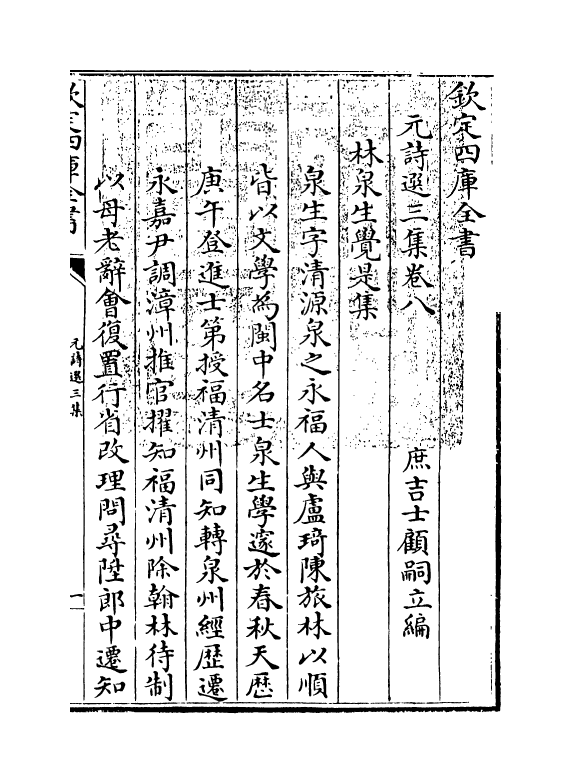 欽定四庫全書
元詩選三集卷八
庶吉士顧嗣立編
林泉生覺是集
泉生字清源泉之永福人與盧琦陳旅林以順
皆以文學為閩中名士泉生學邃於春秋天歴
庚午登進士第授福清州同知轉泉州經歴遷
永嘉尹調漳州推官擢知福清州除翰林待制
以母老辭會復置行省改理問尋陞郎中遷知
欽定四庫全書
元詩選三集
一